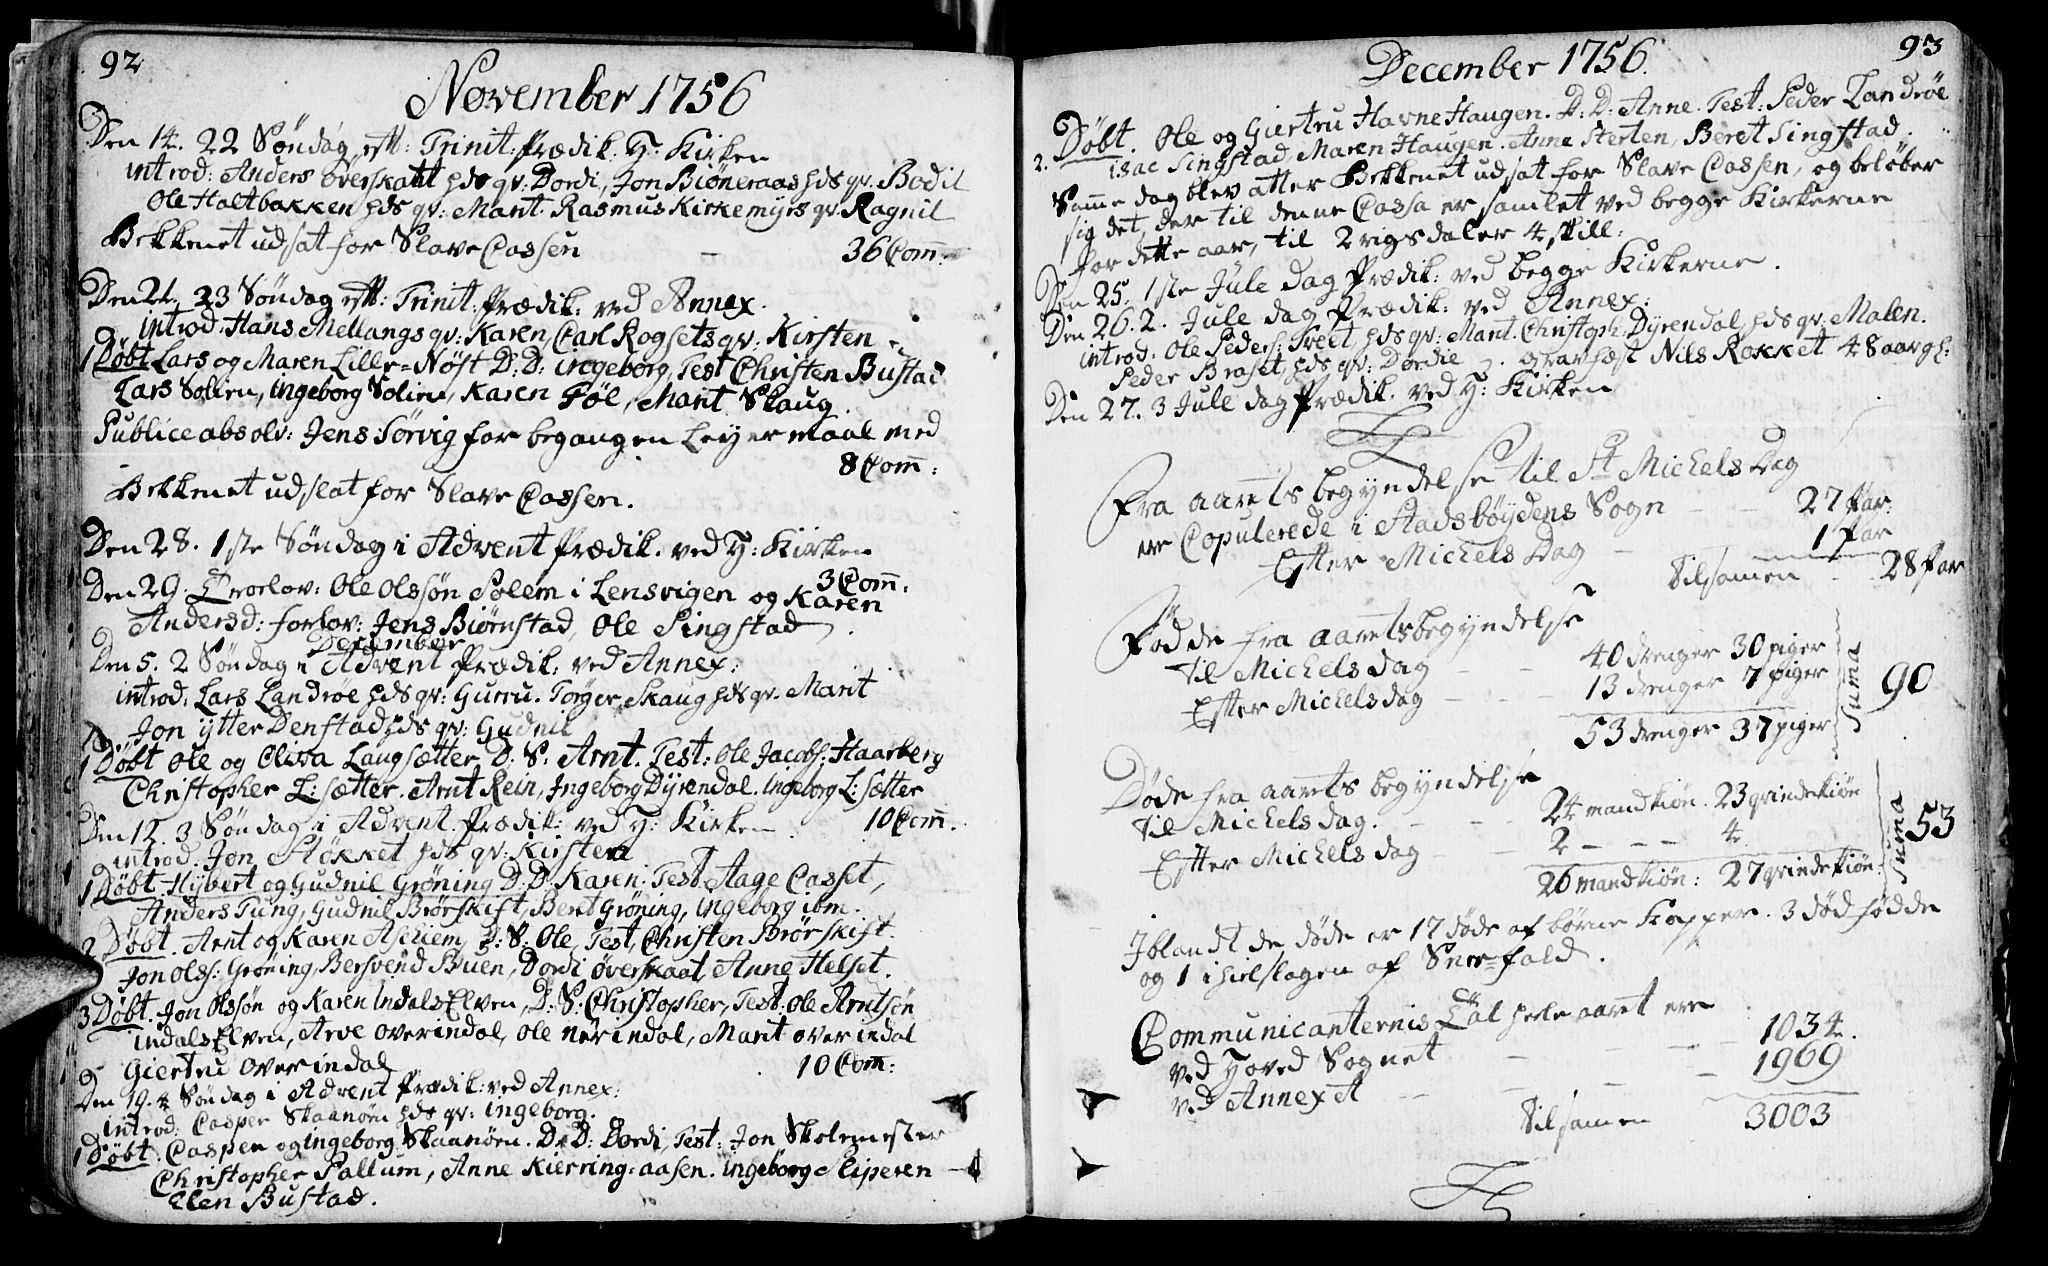 92
November 1756
Den 14. 22 Søndag eft: Trinit: Prædik: H: Kirken
introd: Anders Överskatt hds qv: Dordi, Jon Biöneraas hds qv. Bodil
Ole Holtbakken hds qv: Marit. Rasmus Kirkemyrs qv. Ragnil
Bekkenet udsat for Slave Cassen - 36 Com̅:
Den 21. 23 Søndag eft: Trinit: Prædik: ved Annex.
introd: Hans Mellangs qv: Karen, Carl Rogsets qv: Kirsten
1 Døbt Lars og Maren Lille=Nöst D: D: ingeborg, Test Christen Bustad
Lars Solien, ingeborg Solien, Karen Föl, Marit Skaug.
Publice absolv: Jens Sörvig for begangen Leyermaal med
8 Com̅:
Bekkenet udsat for Slave Cassen.
Den 28. 1ste Søndag i Advent Prædik. ved H: Kirken
3 Com̅:
Den 29. Troelov: Ole Olssön Solem i Lensvigen og Karen
Andersd: forlov: Jens Biörnstad, Ole Singstad.
December
Den 5. 2 Søndag i Advent Prædik: ved Annex:
introd: Lars Landröe hds qv: Gurru. Torger Skaug hds qv. Marit
Jon ytter Denstad hds qv: Gudnil
1 Døbt Ole og Elisa Langsætter D: S: Arnt. Test: Ole Jacobs: Haarberg
Christopher L: sætter. Arnt Rein, Ingeborg Dyrendal. ingeborg L: sætter
Den 12. 3 Søndag i Advent. Prædik: ved H: Kirken. 10 Com̅.
introd: Jon Stökket hds qv: Kirsten
1 Døbt Hybert og Gudnil Gröning D: D. Karen. Test. Aage Casset,
Anders Tung, Gudnil Brörskift, Berit Gröning, ingeborg ibm.
2 Døbt. Arnt og Karen Aschiem, D: S: Ole, Test, Christen Brörskift
Jon Olss: Gröning, Bersvend Buen, Dordi överskaat Anne Helset.
3 Døbt. Jon Olssön og Karen Indals Elven, D: S: Christopher, Test: ole Arntsön
indals Elven, Arve overindal, ole nerindal, Marit overindal
Giertru overindal 10 Com̅:
Den 19. 4 Søndag i Advent Prædik: ved Annex:
introd: Casper Skaanöen hds qv: ingeborg.
1 Døbt. Casper og ingeborg Skaanöen. D: D: Dordi, Test: Jon Skolemester
Christopher Sallum, Anne Kierring=aasen. ingeborg Sliperen
Elen Bustad.
93
December 1756.
2. Døbt. Ole og Giertru HavneHaugen. D: D: Anne. Test: Peder Landröe
isac Singstad, Maren Haugen. Anne Sterten, Beret Singstad.
Samme dag blev atter Bekkenet udsat for Slave Cassen, og beløber
sig det, der til denne Cassa er samlet ved begge Kirkerne
for dette aar, til 2 rigsdaler 4 skill:
Den 25. 1ste Jule dag Prædik: ved begge Kirkerne.
Den 26. 2. Jule dag Prædik: ved Annex:
introd: Ole Peders: Treet hds qv: Marit. Christoph: Dyrendal, hds qv: Malen.
Peder Braset, hds qv: Dordie. Nils Rokket 48 aar gl:
Den 27. 3 Jule dag Prædik. ved H: Kirken
Fra aarets begyndelse til St Michels Dag
ere Copulerede i Stadsbøydens Sogn - - 27 Par.
Efter Michels Dag - 1 Par
Tilsamen - 28 Par
Fødde fra aarets begyndelse
til Michels dag - - 40 drenger 30 piger
Efter Michels dag - - 13 drenger 7 piger
53 drenger 37 piger
Suma 90
Døde fra aarets begyndelse
til Michels dag. - - 24 mandkiön. 23 qvindekiön
Efter Michels dag - - 2 - - - 4
26 mandkiön: 27 qvindekiön.
Suma 53
Jblandt de døde er 17 døde af børne Kopper. 3 dødfødde
og 1 ihielslagen af Snee=fald.
Communicanternis Tal hele aaret ere
ved Hoved Sognet - - - 1034.
ved Annexet - - - 1969
Tilsamen 3003